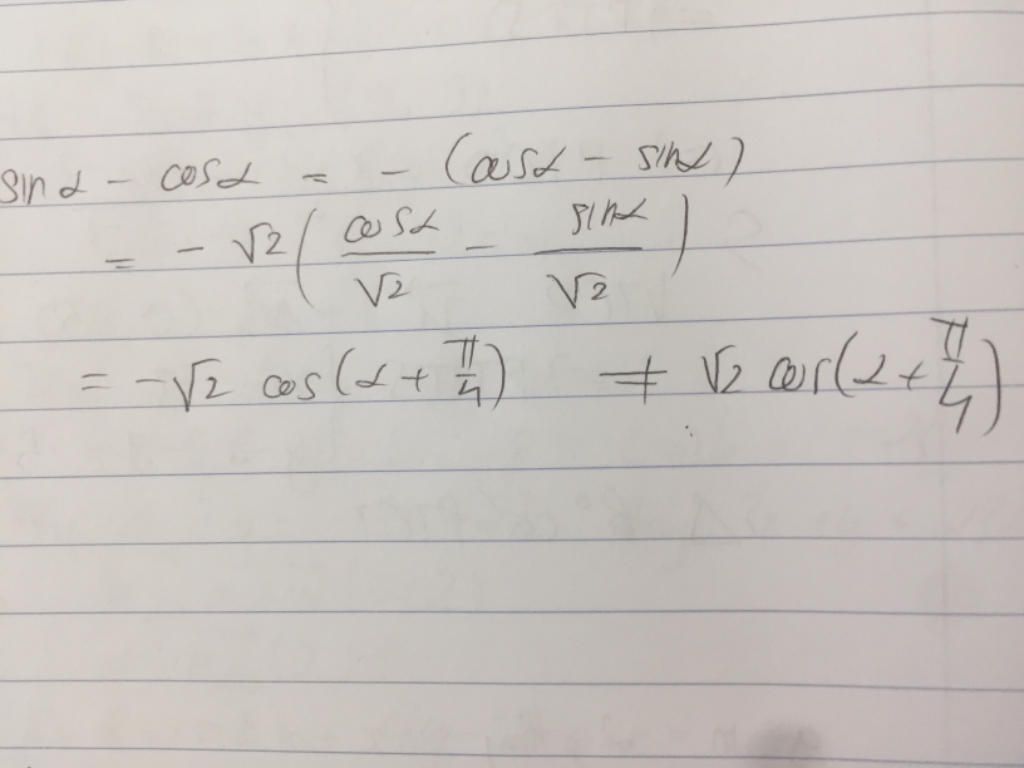 sin α - cos α = - (cos α - sin α)
= - √2 ( cos α / √2 - sin α / √2 )
= -√2 cos(α + π/4) ≠ √2 cos(α + π/4)